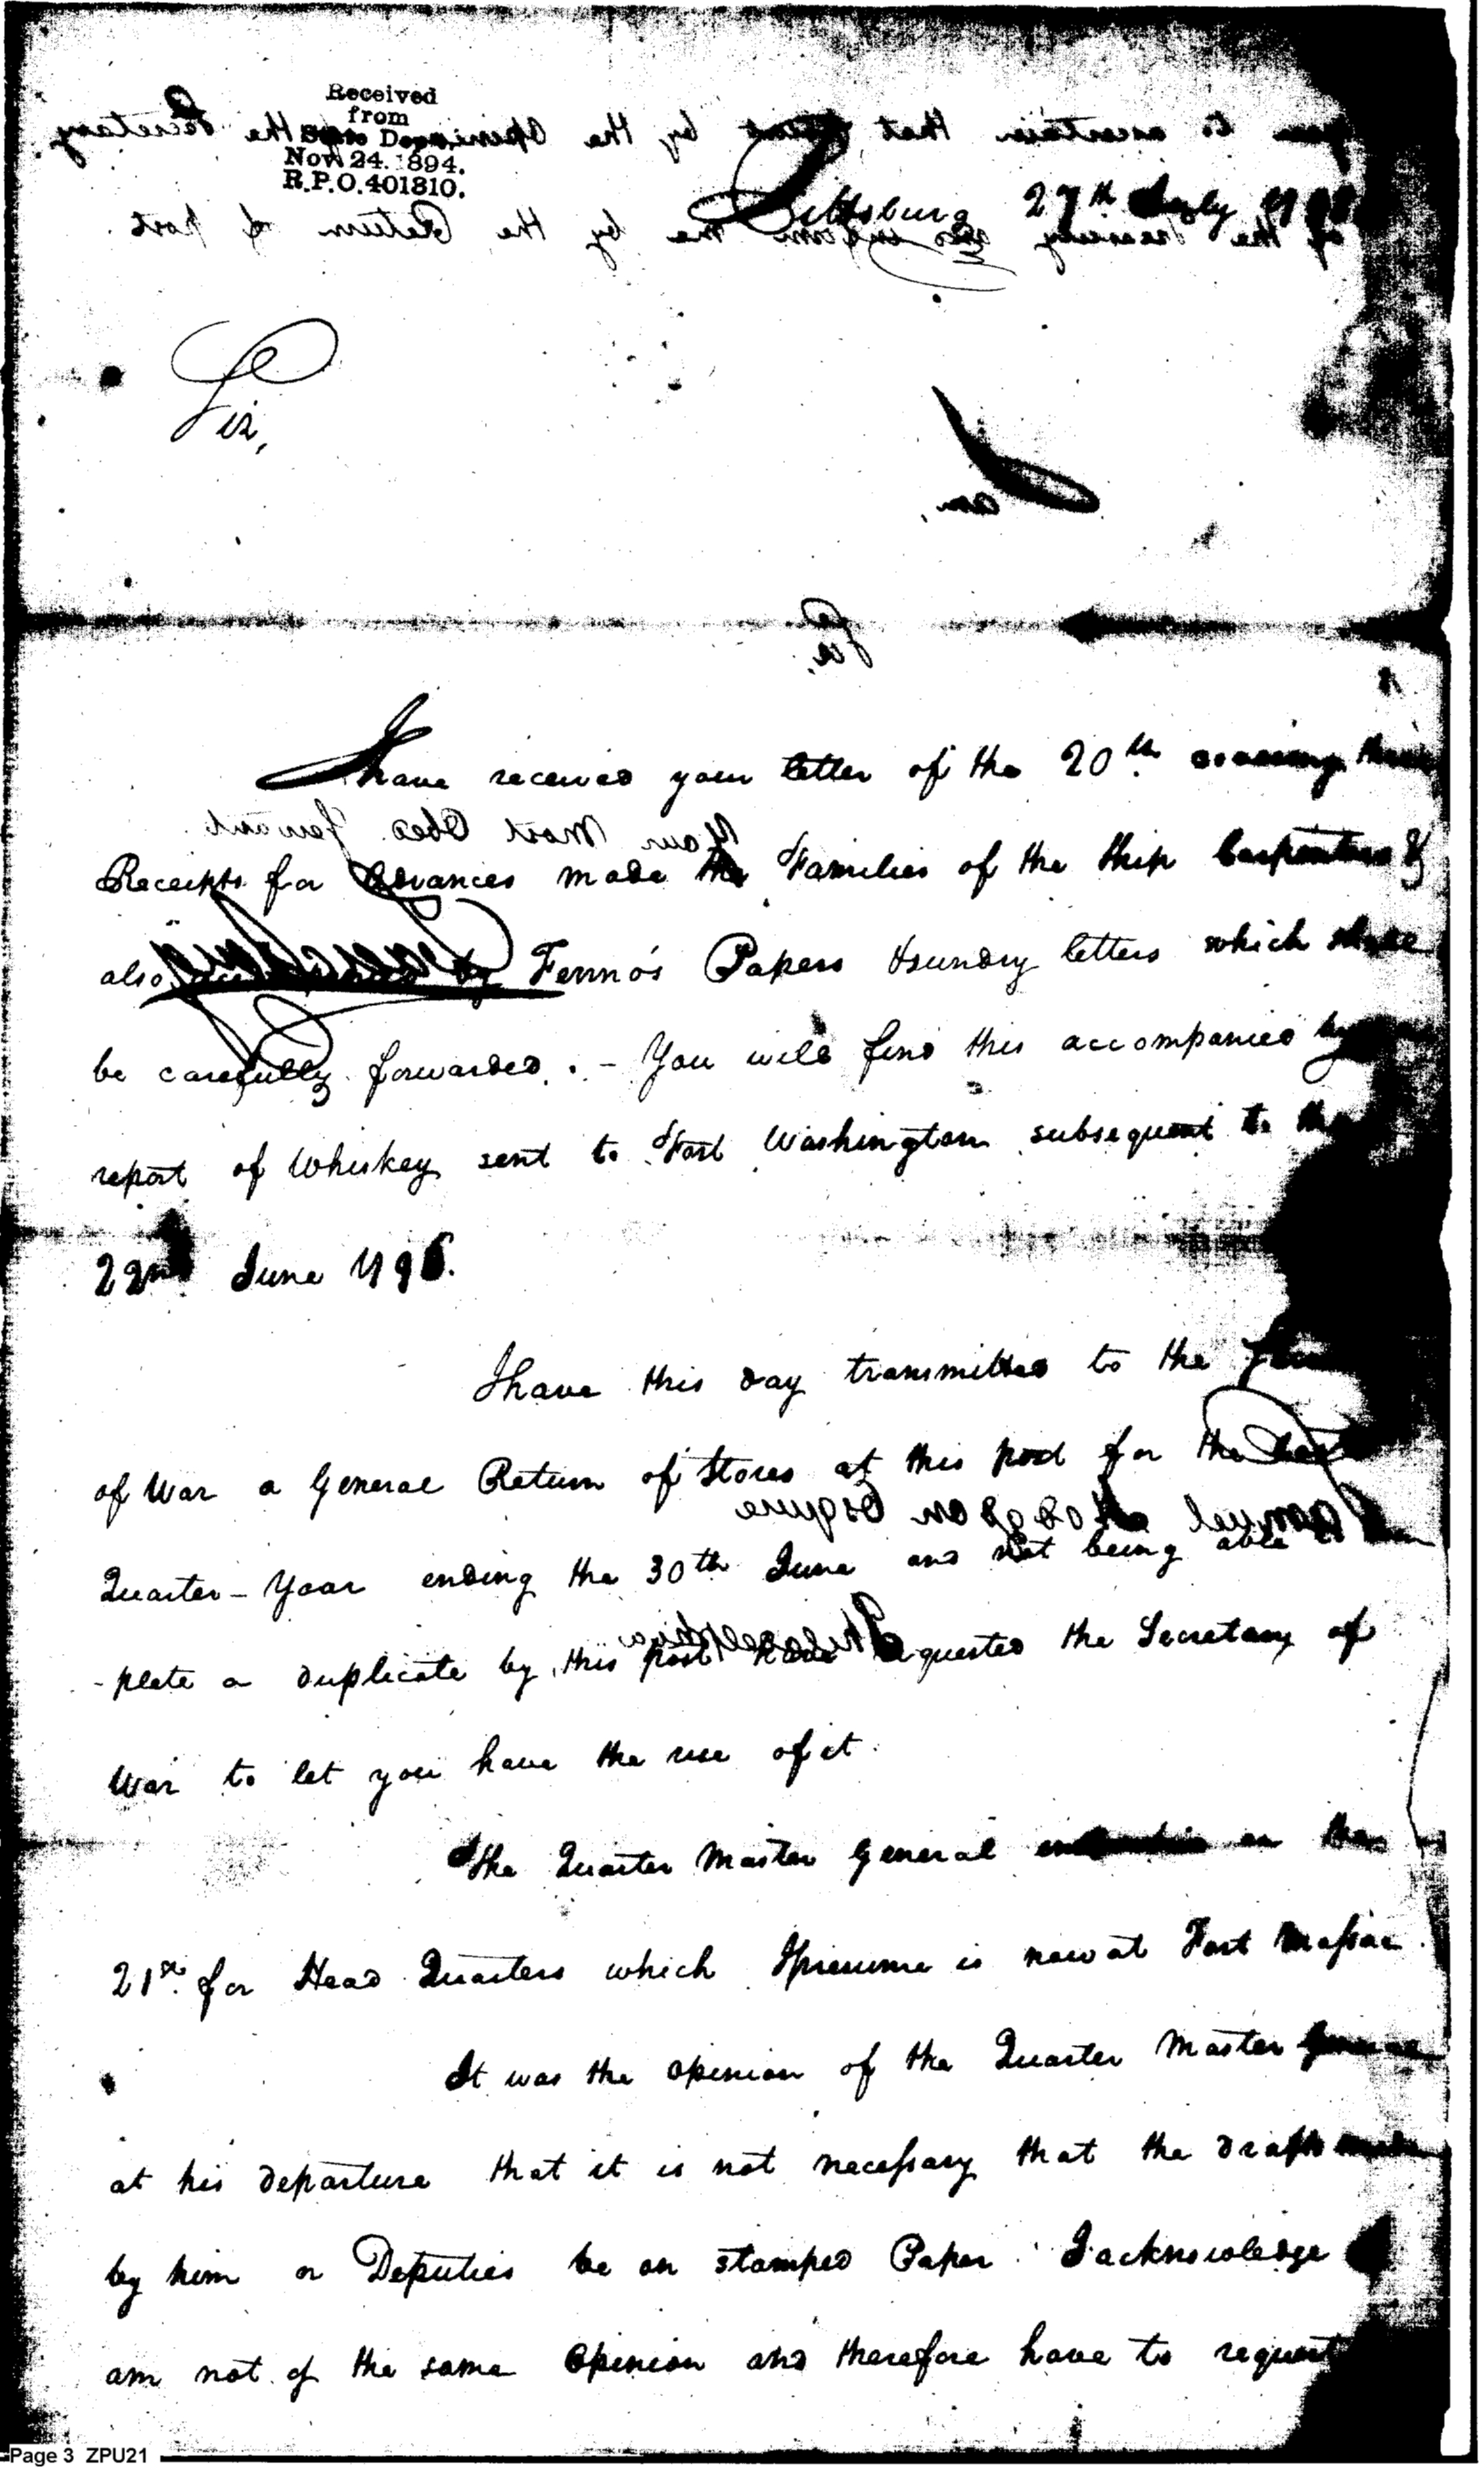 Received
from
Nov 24. 1894.
R.P.O. 401810.
Pittsburg 27th July
Sir,
I have received your letter of the 20th.
Receipts for Advances made the Families of the Ship Carpenters &
also by Fenno's Papers & sundry letters which shall
be carefully forwarded. - You will find this accompanied by
report of Whiskey sent to Fort Washington subsequent to the
22nd June
I have this day transmitted to the
of War a General Return of Stores at this post for the
Quarter-Year ending the 30th June and not being able
-plete a duplicate by this post have requested the Secretary of
War to let you have the use of it.
The Quarter Master General on the
21st. for Head Quarters which I presume is now at Fort Massac
It was the opinion of the Quarter Master General
at his departure that it is not necessary that the drafts made
by him or Deputies be on stamped Paper. I acknowledge
am not of the same Opinion and therefore have to request
you to ascertain that by the Opinion of the Secretary
of the Treasury and inform me by the Return of post.
am,
Sir,
Your Most Obed Servant
Isaac Craig
Samuel Hodgdon Esquire
Philadelphia
Page 3 ZPU21